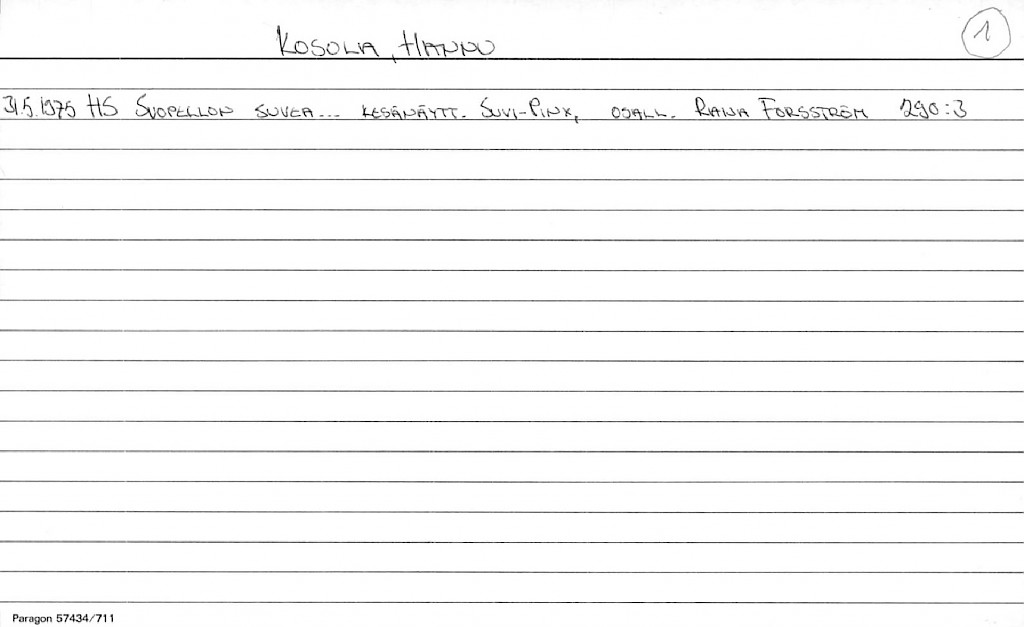 KOSOLA, HANNU
1
31.5.1975 HS SUOPELLON SUVEA... KESÄNÄYTT. SUVI-PINX, OSALL. RAIJA FORSSTRÖM 290:3
Paragon 57434/711